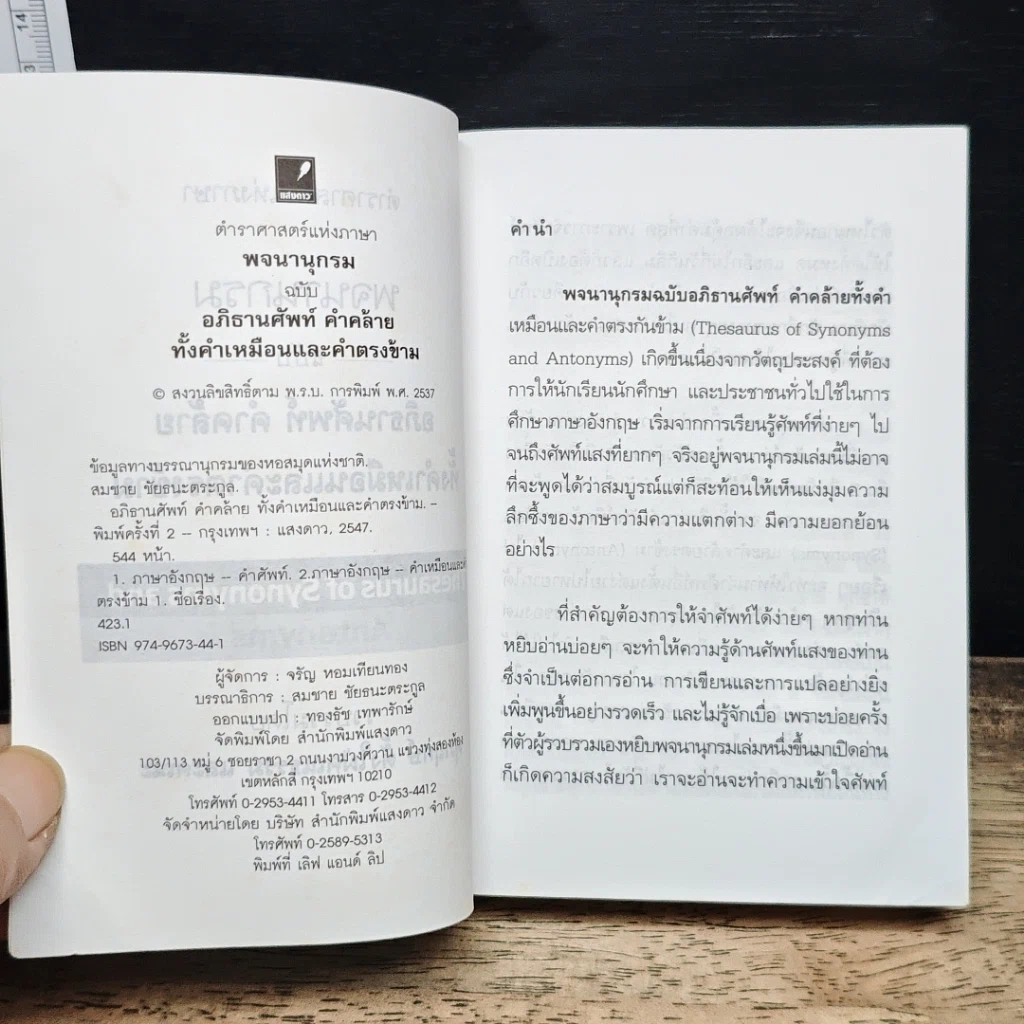 14
3
แสงดาว
ตำราศาสตร์แห่งภาษา
พจนานุกรม
ฉบับ
อภิธานศัพท์ คำคล้าย
ทั้งคำเหมือนและคำตรงข้าม
© สงวนลิขสิทธิ์ตาม พ.ร.บ. การพิมพ์ พ.ศ. 2537
ข้อมูลทางบรรณานุกรมของหอสมุดแห่งชาติ.
สมชาย ชัยธนะตระกูล.
อภิธานศัพท์ คำคล้าย ทั้งคำเหมือนและคำตรงข้าม. –
พิมพ์ครั้งที่ 2 – กรุงเทพฯ : แสงดาว, 2547.
544 หน้า.
1. ภาษาอังกฤษ – คำศัพท์. 2.ภาษาอังกฤษ – คำเหมือนและคำ
ตรงข้าม 1. ชื่อเรื่อง.
423.1
ISBN 974-9673-44-1
ผู้จัดการ : จรัญ หอมเทียนทอง
บรรณาธิการ : สมชาย ชัยธนะตระกูล
ออกแบบปก : ทองธัช เทพารักษ์
จัดพิมพ์โดย สำนักพิมพ์แสงดาว
103/113 หมู่ 6 ซอยราชา 2 ถนนงามวงศ์วาน แขวงทุ่งสองห้อง
เขตหลักสี่ กรุงเทพฯ 10210
โทรศัพท์ 0-2953-4411 โทรสาร 0-2953-4412
จัดจำหน่ายโดย บริษัท สำนักพิมพ์แสงดาว จำกัด
โทรศัพท์ 0-2589-5313
พิมพ์ที่ เลิฟ แอนด์ ลิป
คำนำ
พจนานุกรมฉบับอภิธานศัพท์ คำคล้ายทั้งคำ
เหมือนและคำตรงกันข้าม (Thesaurus of Synonyms
and Antonyms) เกิดขึ้นเนื่องจากวัตถุประสงค์ ที่ต้อง
การให้นักเรียนนักศึกษา และประชาชนทั่วไปใช้ในการ
ศึกษาภาษาอังกฤษ เริ่มจากการเรียนรู้ศัพท์ที่ง่ายๆ ไป
จนถึงศัพท์แสงที่ยากๆ จริงอยู่พจนานุกรมเล่มนี้ไม่อาจ
ที่จะพูดได้ว่าสมบูรณ์แต่ก็สะท้อนให้เห็นแง่มุมความ
ลึกซึ้งของภาษาว่ามีความแตกต่าง มีความยอกย้อน
อย่างไร
ที่สำคัญต้องการให้จำศัพท์ได้ง่ายๆ หากท่าน
หยิบอ่านบ่อยๆ จะทำให้ความรู้ด้านศัพท์แสงของท่าน
ซึ่งจำเป็นต่อการอ่าน การเขียนและการแปลอย่างยิ่ง
เพิ่มพูนขึ้นอย่างรวดเร็ว และไม่รู้จักเบื่อ เพราะบ่อยครั้ง
ที่ตัวผู้รวบรวมเองหยิบพจนานุกรมเล่มหนึ่งขึ้นมาเปิดอ่าน
ก็เกิดความสงสัยว่า เราจะอ่านจะทำความเข้าใจศัพท์